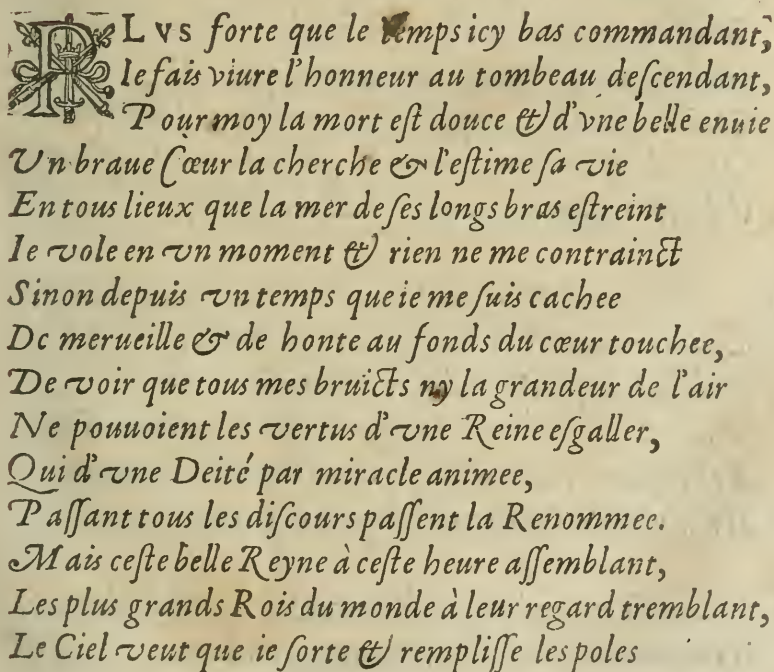 PLVS forte que le temps icy bas commandant,
Ie fais viure l'honneur au tombeau deſcendant,
Pour moy la mort eſt douce & d'vne belle enuie
Vn braue Cœur la cherche & l'eſtime ſa vie
En tous lieux que la mer de ſes longs bras eſtreint
Ie vole en vn moment & rien ne me contrainct
Sinon depuis vn temps que ie me ſuis cachee
De merueille & de honte au fonds du cœur touchee,
De voir que tous mes bruicts ny la grandeur de l'air
Ne pouuoient les vertus d'vne Reine eſgaller,
Qui d'vne Deité par miracle animee,
Paſſant tous les diſcours paſſent la Renommee.
Mais ceſte belle Reyne à ceſte heure aſſemblant,
Les plus grands Rois du monde à leur regard tremblant,
Le Ciel veut que ie ſorte & rempliſſe les poles